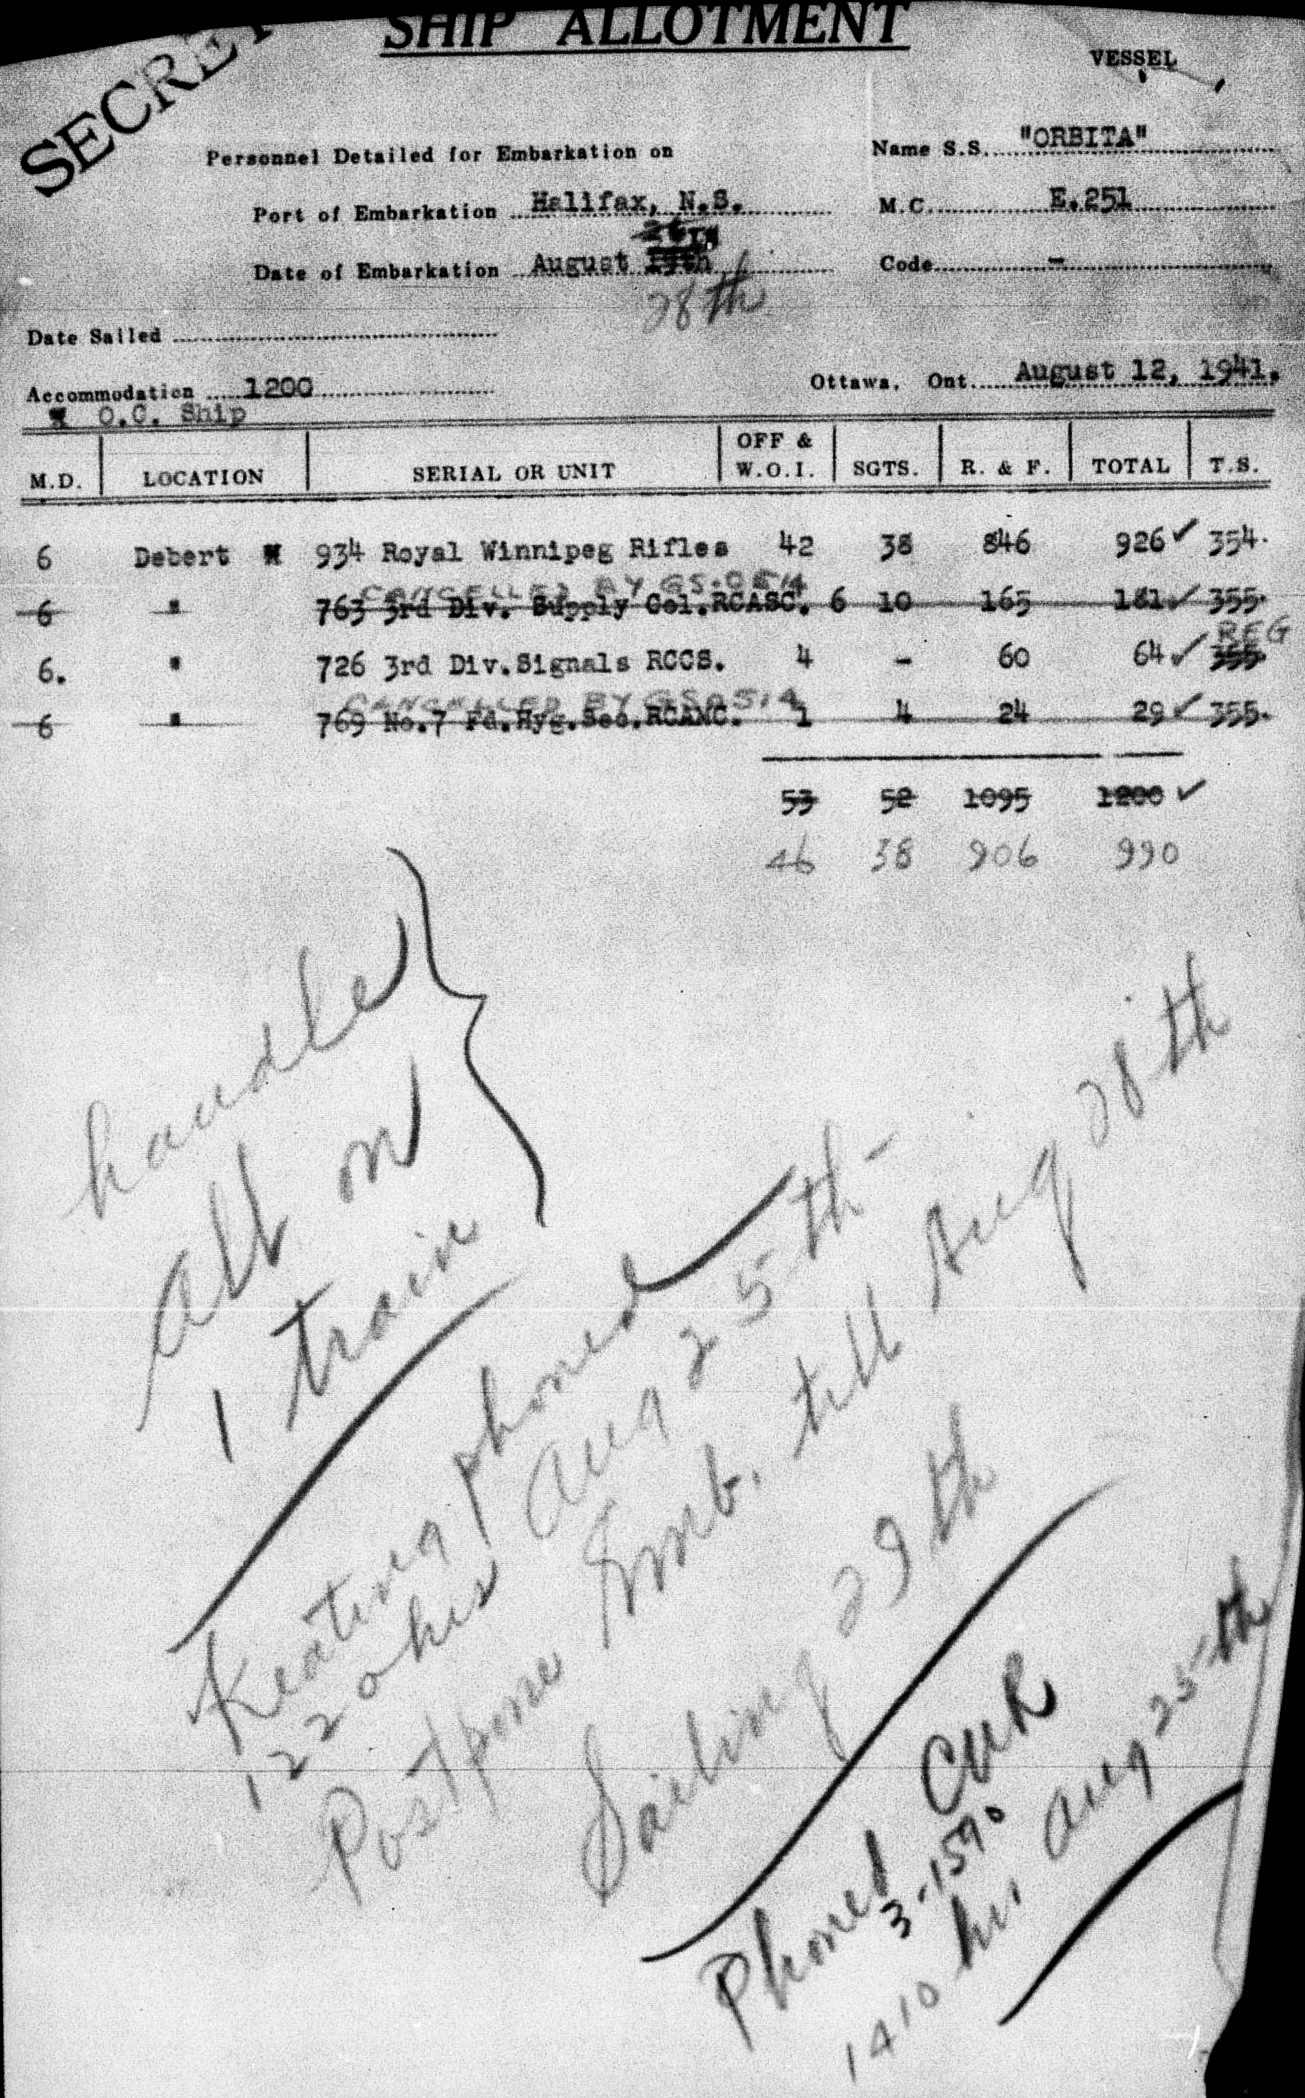 SHIP ALLOTMENT
SECRET
VESSEL
Personnel Detailed for Embarkation on
Name S.S. "ORBITA"
Port of Embarkation Halifax, N.S.
M.C. E.251
26th
Date of Embarkation August 19th
Code -
28th
Date Sailed
Accommodation 1200
Ottawa, Ont. August 12, 1941.
O.C. Ship
M.D. LOCATION SERIAL OR UNIT OFF & W.O.I. SGTS. R. & F. TOTAL T.S.
6 Debert 934 Royal Winnipeg Rifles 42 38 846 926 ✓ 354.
CANCELLED BY GS.0514
6 " 763 3rd Div. Supply Col.RCASC. 6 10 165 181 ✓ 355.
REG
6. " 726 3rd Div.Signals RCCS. 4 - 60 64 ✓ 355.
CANCELLED BY GS0514
6 " 769 No.7 Fd.Hyg.Sec.RCAMC. 1 4 24 29 ✓ 355.
53 52 1095 1200 ✓
46 38 906 990
handle
all on
1 train
Keating phoned
1220 hrs Aug 25th -
Postpone Emb. till Aug 28th
Sailing 29th
Phoned CNR
3-1590
1410 hr. Aug 25th